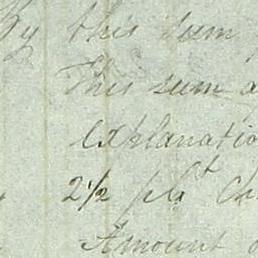 By this sum
This sum
explanatio
2½ plt Ch
Amount